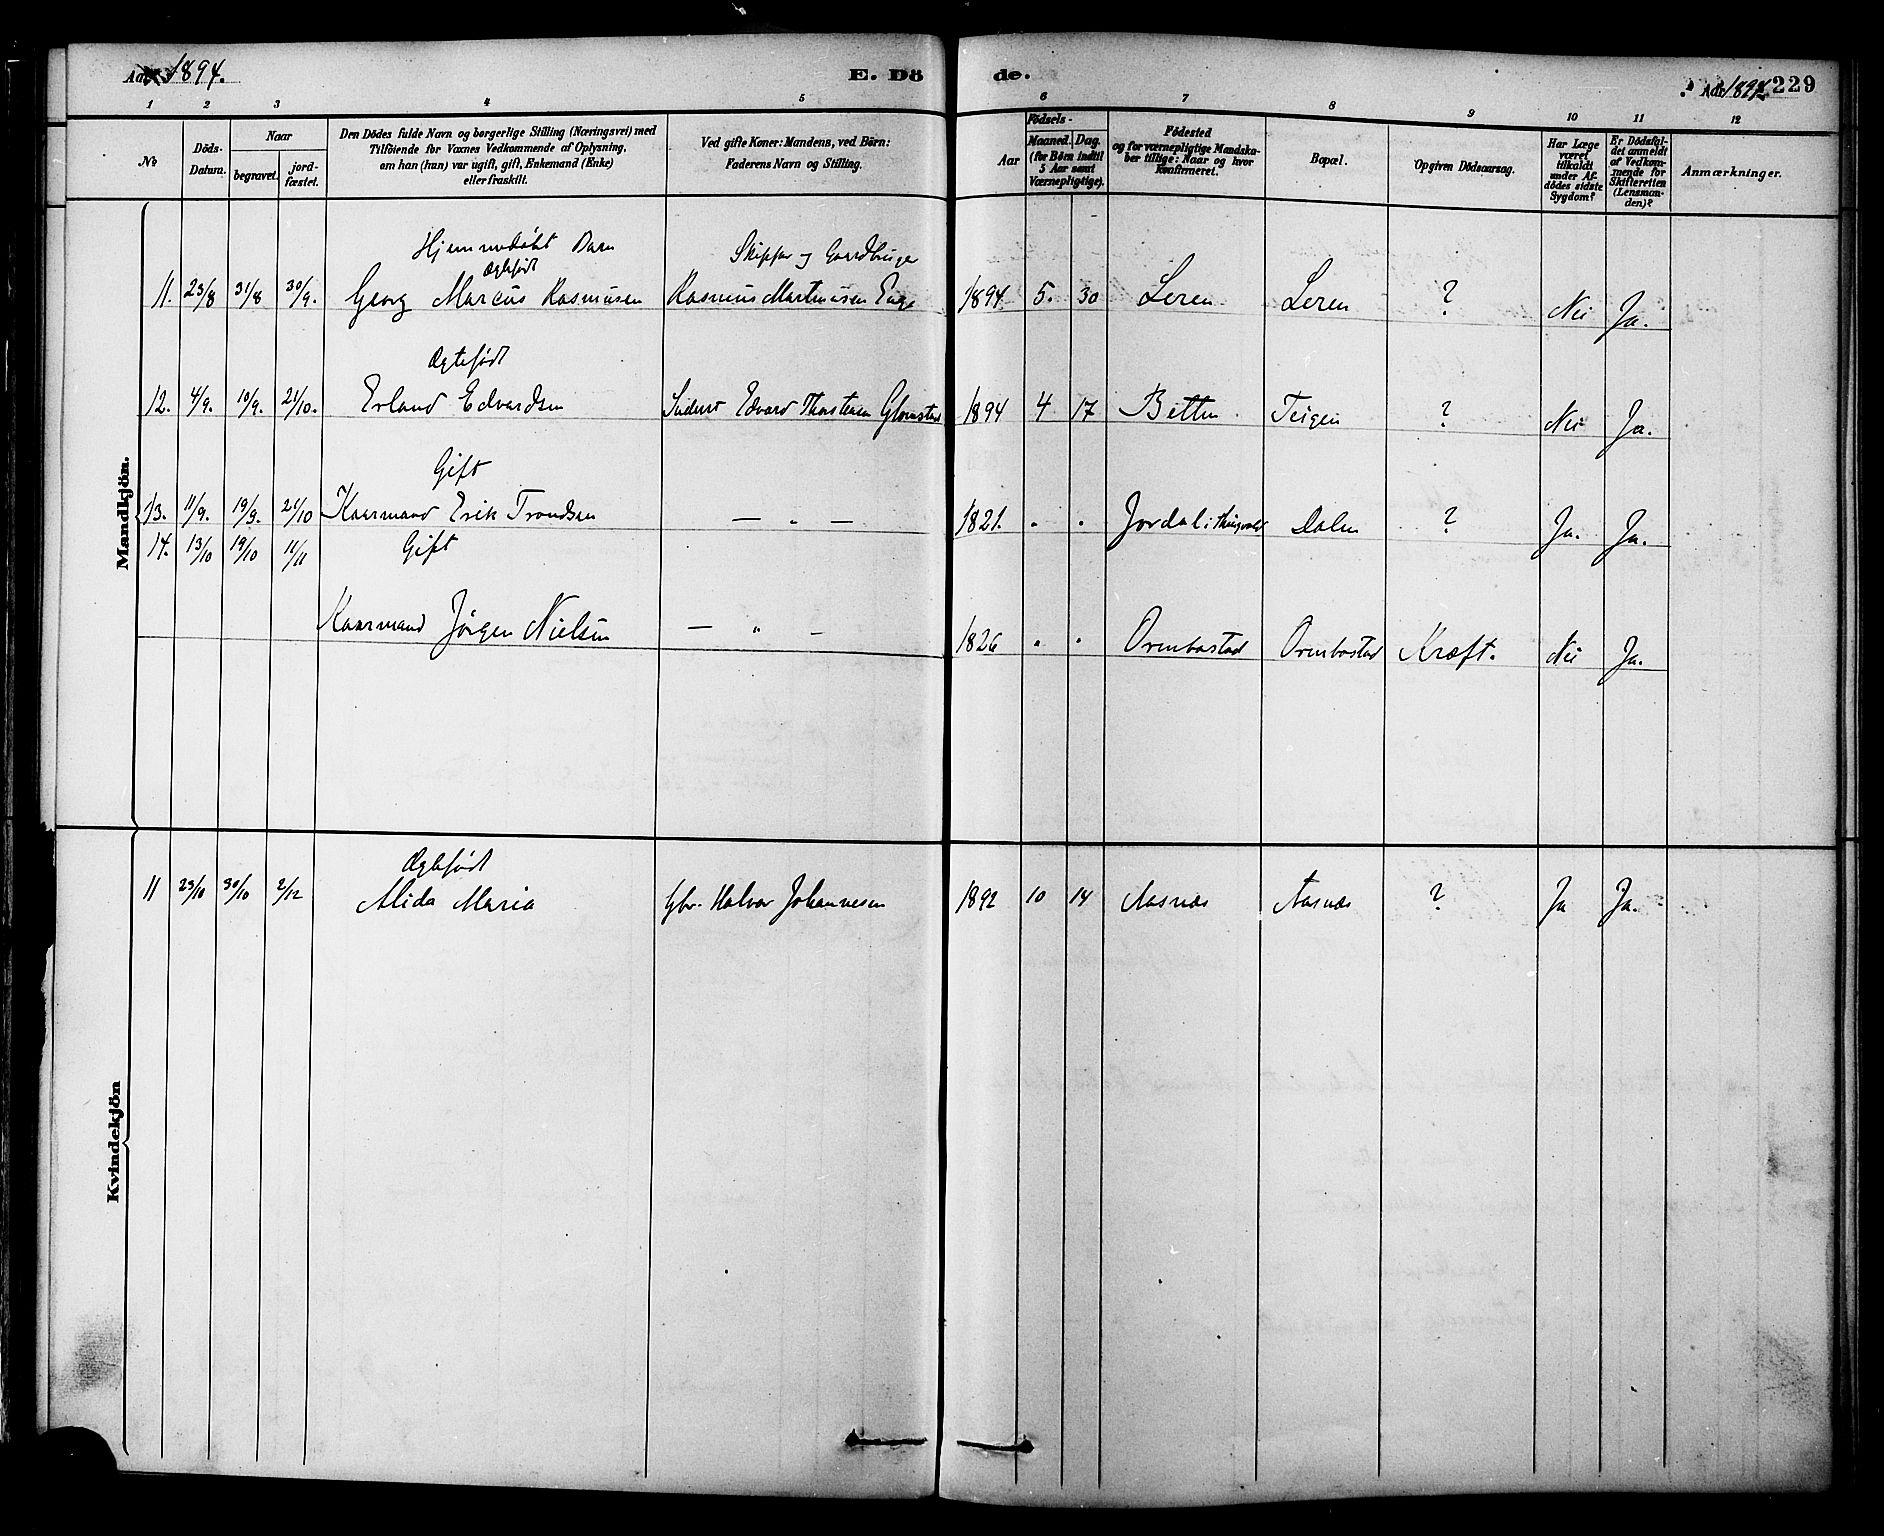 Aar 1894.
E. Dö
de.
Aar 1894.
229
1 2 3 4 5 6 7 8 9 10 11 12
No
Döds-Datum.
Naar
begravet.
jord-fæstet.
Den Dödes fulde Navn og borgerlige Stilling (Næringsvei) med
Tilföiende for Voxnes Vedkommende af Oplysning,
om han (hun) var ugift, gift, Enkemand (Enke)
eller fraskilt.
Ved gifte Koner: Mandens, ved Börn:
Faderens Navn og Stilling.
Födsels-
Aar
Maaned. Dag.
(for Börn indtil
5 Aar samt
Værnepligtige).
Födested
og for værnepligtige Mandska-
ber tillige: Naar og hvor
konfirmeret.
Bopæl.
Opgiven Dödsaarsag.
Har Læge
været
tilkaldt
under Af-
dödes sidste
Sygdom?
Er Dödsfal-
det anmeldt
af Vedkom-
mende for
Skifteretten
(Lensman-
den)?
Anmærkninger.
Mandkjön.
Hjemmedöbt Barn Skipper og Gaardbruger
Ægtefödt
11. 23/8 31/8 30/9. Georg Marcus Rasmusen Rasmus Martinusen Enge 1894 5. 30 Leren Leren ? Nei Ja.
Ægtefödt
12. 4/9. 10/9. 21/10. Erland Edvardsen Inderst Edvard Thorstensen Glomstad 1894 4 17 Betten Teigen ? Nei Ja.
Gift
13. 11/9. 19/9. 21/10 Kaarmand Erik Trondsen — " — 1821. " " Jordal i Thingvold Dalen ? Ja. Ja.
14. 13/10 19/10 11/11 Gift
Kaarmand Jörgen Nielsen — " — 1826 " " Ormbostad Ormbostad Kræft. Nei Ja.
Kvindekjön
Ægtefödt
11 23/10 30/10 2/12 Alida Maria Gbr. Halvor Johannesen 1892 10 14 Aasnæs Aasnæs ? Ja Ja.